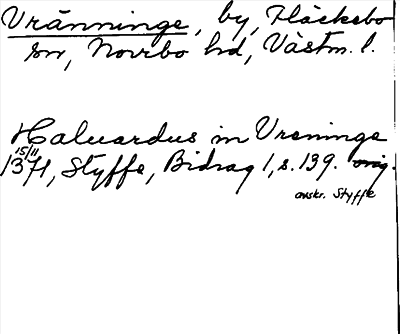 Vränninge, by, Fläckebo
sn, Norrbo hd, Västm. l.
Haluardus in Vreninge
15/11
1371, Styffe, Bidrag 1, s. 139. orig.
avskr. Styffe